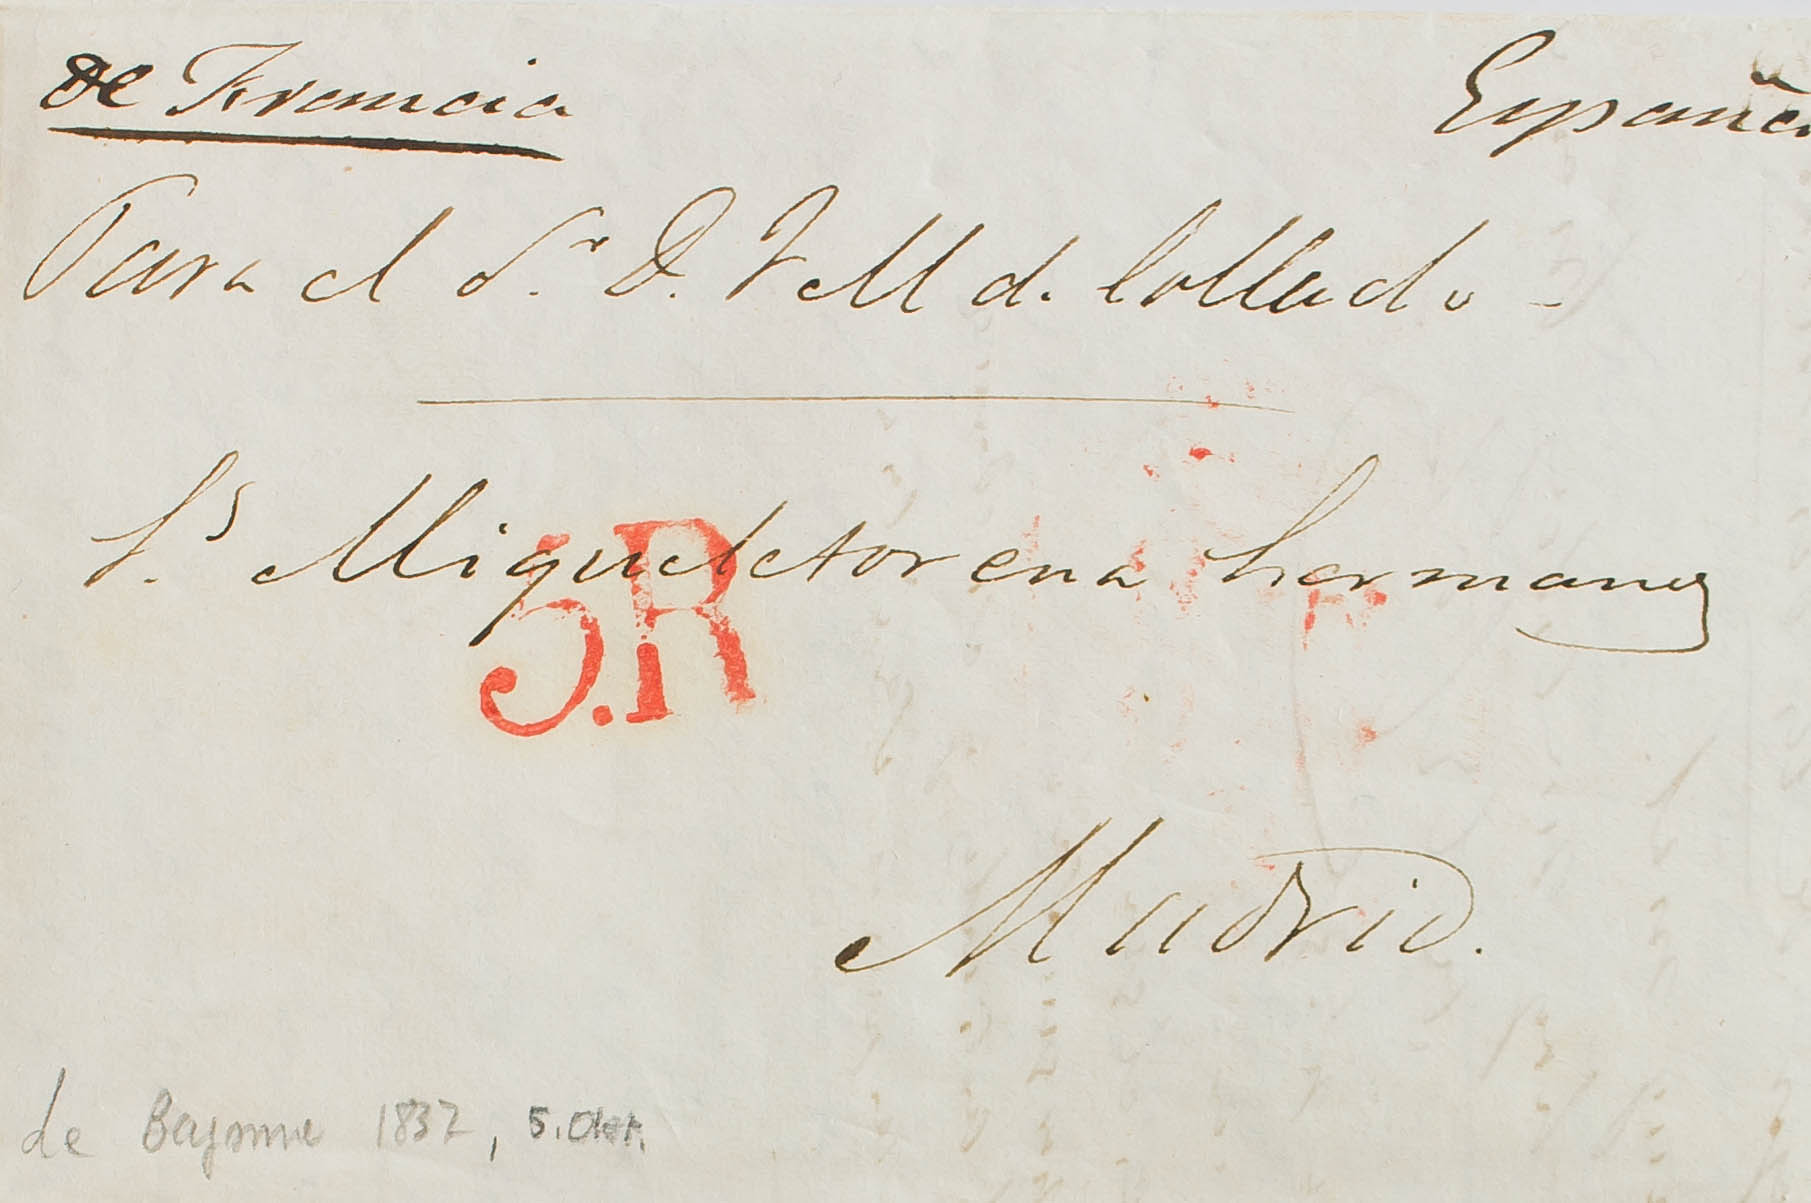 de Francia España
Para el Sr. D. J M de Collado -
Ss Migueletorena hermanos
5.R
Madrid.
de Bayonne 1837, 5. Okt.